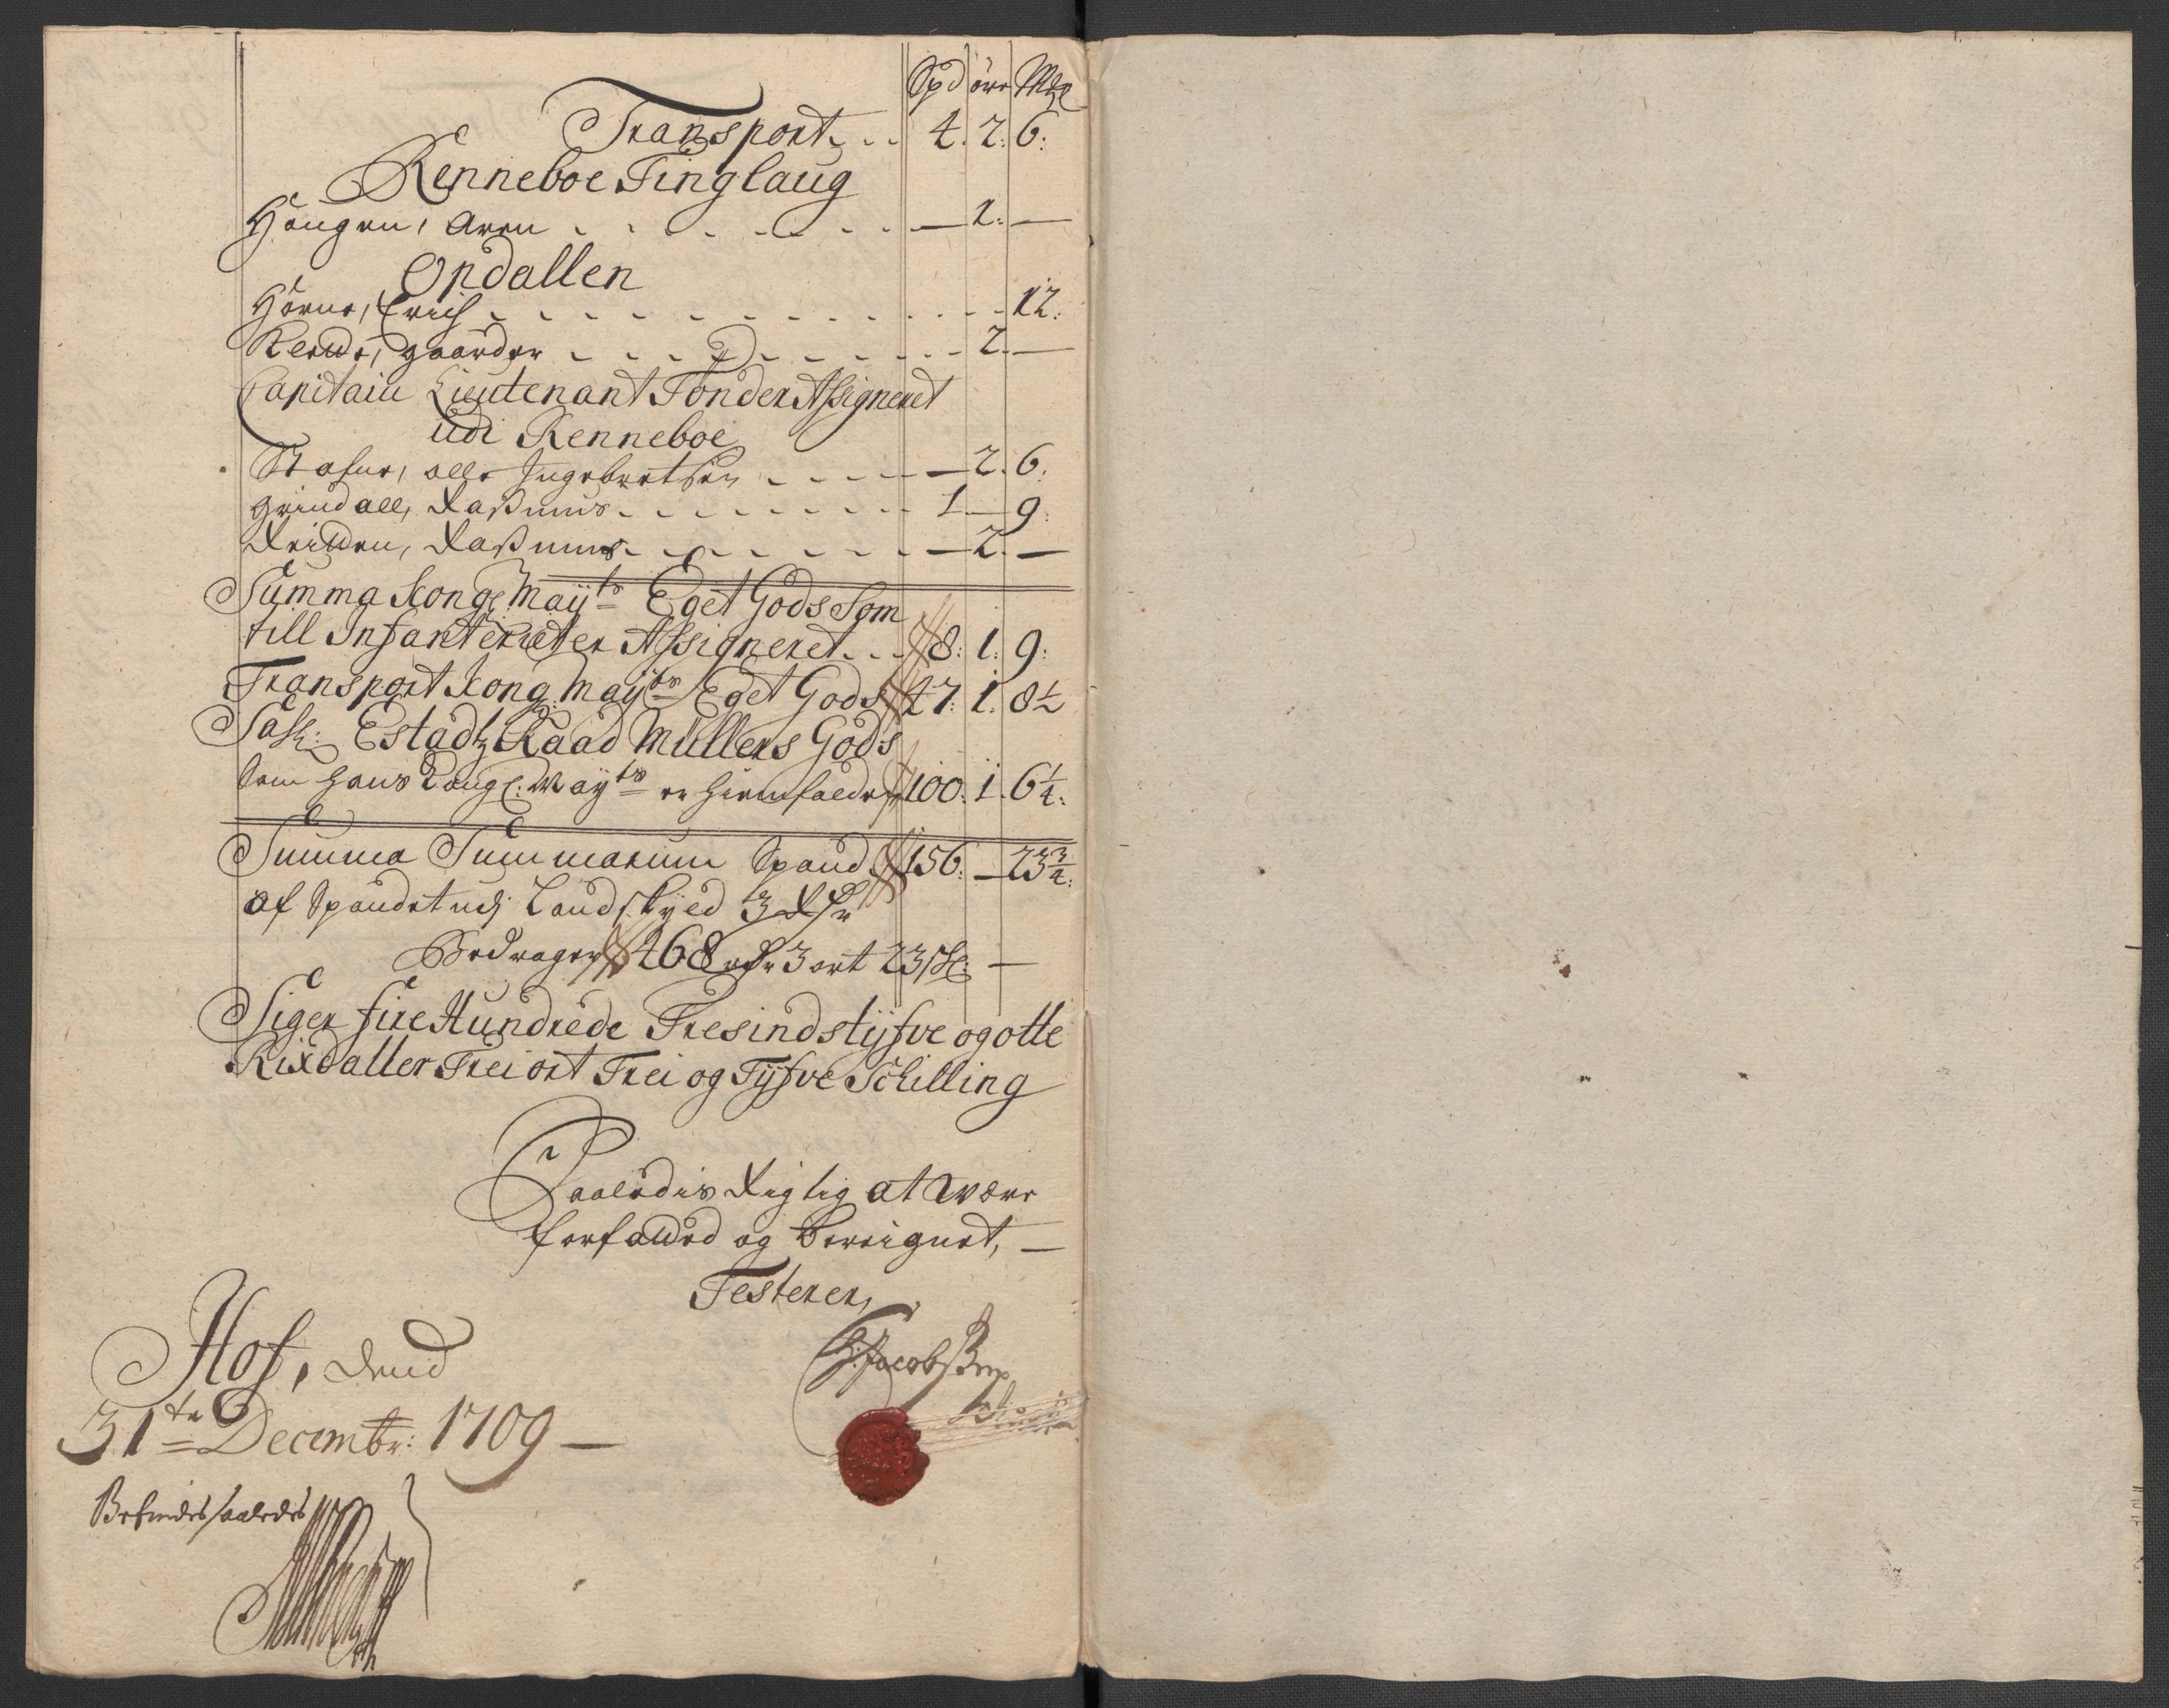 Spd öre Mke
Transport . . 4. 2. 6.
Renneboe Tinglaug
Hougen, Aren . . . . . . — 1. —
Opdallen
Horne, Erich . . . . . . . . 12.
gaarder . . . . . . 2. —
Capitain Lieutenant Tonder Assigneret
udi Renneboe
Olle Ingebretsen . . . . — 2. 6.
Grindall, Rasmus . . . . . . 1 — 9.
Rasmus . . . . . . — 2. —
Summa Kongl: Mayts Eget Gods som
till Infanteriet er Assigneret . . 8. 1. 9.
Transport Kong: Mayts Eget Gods 47. 1. 8½
Sahl: Estadtz Raad Mullers Gods
som Hans Kongl: Mayts er hiemfalden 100. 1. 6¼.
Summa Summarum Spand 156. — 23¾.
af Spandet udj Landskyld 3 Rdr
Bedrager 468 rdr 3 ort 23 sk: —
Siger fire Hundrede Tresindstyfve og otte
Rixdaller Trei ort Trei og Tyfve Schilling
Saaledis Rigtig at være
forfaved og bereignet, —
Testerer,
Hof, dend
31te Decembr: 1709 —
Befindes saaledis